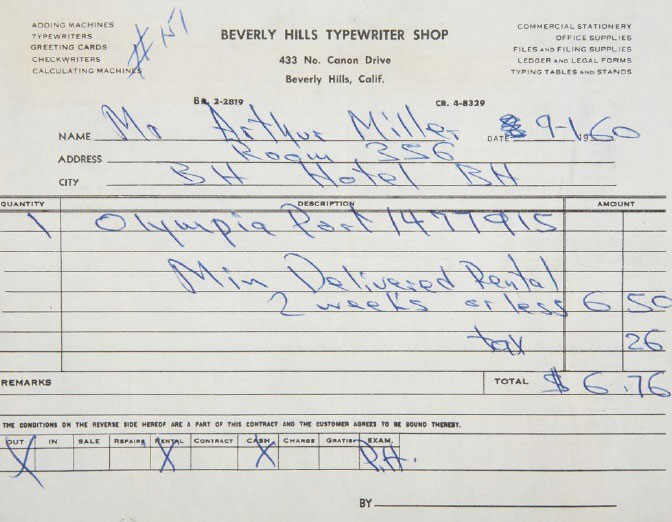 ADDING MACHINES
TYPEWRITERS
GREETING CARDS
CHECKWRITERS
CALCULATING MACHINES
BEVERLY HILLS TYPEWRITER SHOP
433 No. Canon Drive
Beverly Hills, Calif.
COMMERCIAL STATIONERY
OFFICE SUPPLIES
FILES AND FILING SUPPLIES
LEDGER AND LEGAL FORMS
TYPING TABLES AND STANDS
BR. 2-2819 CR. 4-8329
NAME Mr Arthur Miller DATE 9-1 1960
ADDRESS Room 356
CITY BH Hotel BH
QUANTITY DESCRIPTION AMOUNT
1 Olympia Port 1477915
Min Delivered Rental
2 weeks or less 6 50
tax 26
REMARKS TOTAL $ 6.76
THE CONDITIONS ON THE REVERSE SIDE HEREOF ARE A PART OF THIS CONTRACT AND THE CUSTOMER AGREES TO BE BOUND THEREBY.
OUT IN SALE REPAIRS RENTAL CONTRACT CASH CHARGE GRATIS EXAM.
X X X P.H.
BY